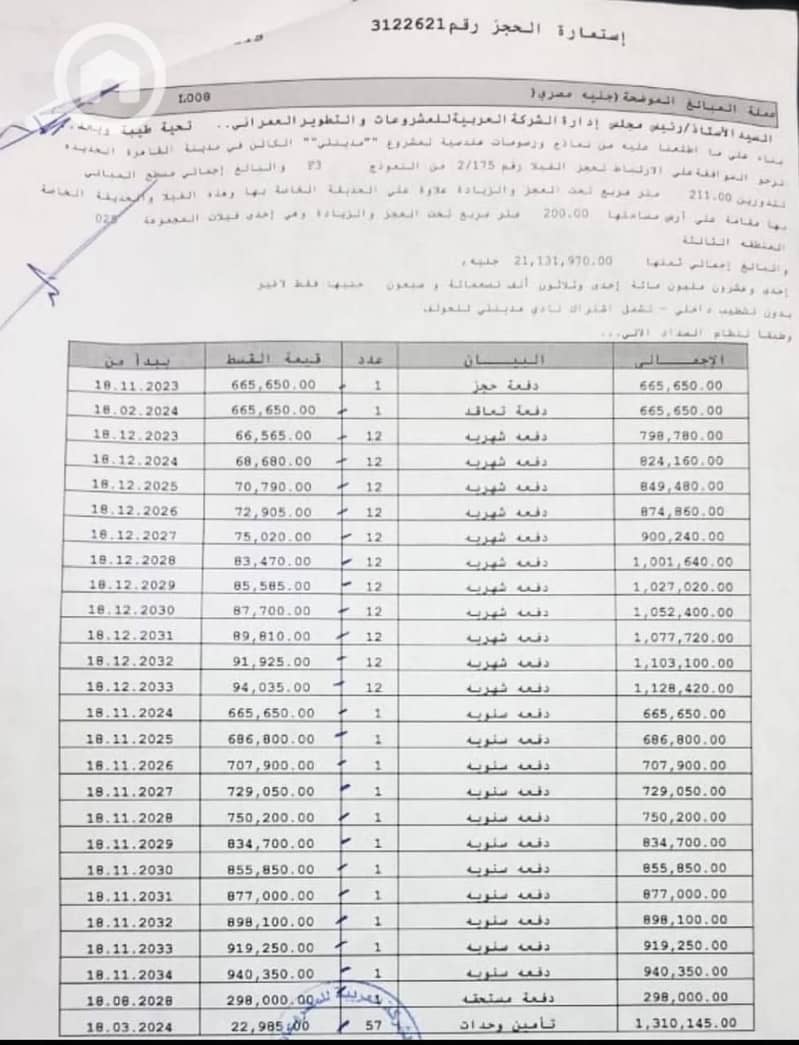 إستمارة الحجز رقم 3122621
عملة المبالغ الموضحة (جنيه مصري) L008
السيد الأستاذ/رئيس مجلس إدارة الشركة العربية للمشروعات والتطوير العمراني.. تحية طيبة وبعد،
بناء على ما اطلعنا عليه من نماذج ورسومات هندسية لمشروع ""مدينتي"" الكائن في مدينة القاهرة الجديدة
نرجو الموافقة على الارتباط لحجز الفيلا رقم 2/175 من النموذج F3 والبالغ إجمالي مسطح المباني
للدورين 211.00 متر مربع تحت العجز والزيادة علاوة على الحديقة الخاصة بها وهذه الفيلا والحديقة الخاصة
بها مقامة على أرض مساحتها 200.00 متر مربع تحت العجز والزيادة وهي إحدى فيلات المجموعة 028
المنطقه الثالثة
والبالغ إجمالي ثمنها 21,131,970.00 جنيه,
إحدى وعشرون مليون مائة إحدى وثلاثون ألف تسعمائة و سبعون جنيها فقط لاغير
بدون تشطيب داخلي - تشمل اشتراك نادي مدينتي للجولف
وطبقا لنظام السداد الآتي...
الإجمـــالي البيـــان عدد قيمة القسط يبدأ من
665,650.00 دفعة حجز 1 665,650.00 18.11.2023
665,650.00 دفعة تعاقد 1 665,650.00 18.02.2024
798,780.00 دفعه شهريه 12 66,565.00 18.12.2023
824,160.00 دفعه شهريه 12 68,680.00 18.12.2024
849,480.00 دفعه شهريه 12 70,790.00 18.12.2025
874,860.00 دفعه شهريه 12 72,905.00 18.12.2026
900,240.00 دفعه شهريه 12 75,020.00 18.12.2027
1,001,640.00 دفعه شهريه 12 83,470.00 18.12.2028
1,027,020.00 دفعه شهريه 12 85,585.00 18.12.2029
1,052,400.00 دفعه شهريه 12 87,700.00 18.12.2030
1,077,720.00 دفعه شهريه 12 89,810.00 18.12.2031
1,103,100.00 دفعه شهريه 12 91,925.00 18.12.2032
1,128,420.00 دفعه شهريه 12 94,035.00 18.12.2033
665,650.00 دفعه سنويه 1 665,650.00 18.11.2024
686,800.00 دفعه سنويه 1 686,800.00 18.11.2025
707,900.00 دفعه سنويه 1 707,900.00 18.11.2026
729,050.00 دفعه سنويه 1 729,050.00 18.11.2027
750,200.00 دفعه سنويه 1 750,200.00 18.11.2028
834,700.00 دفعه سنويه 1 834,700.00 18.11.2029
855,850.00 دفعه سنويه 1 855,850.00 18.11.2030
877,000.00 دفعه سنويه 1 877,000.00 18.11.2031
898,100.00 دفعه سنويه 1 898,100.00 18.11.2032
919,250.00 دفعه سنويه 1 919,250.00 18.11.2033
940,350.00 دفعه سنويه 1 940,350.00 18.11.2034
298,000.00 دفعة مستحقه 1 298,000.00 18.08.2028
1,310,145.00 تأمين وحدات 57 22,985.00 18.03.2024